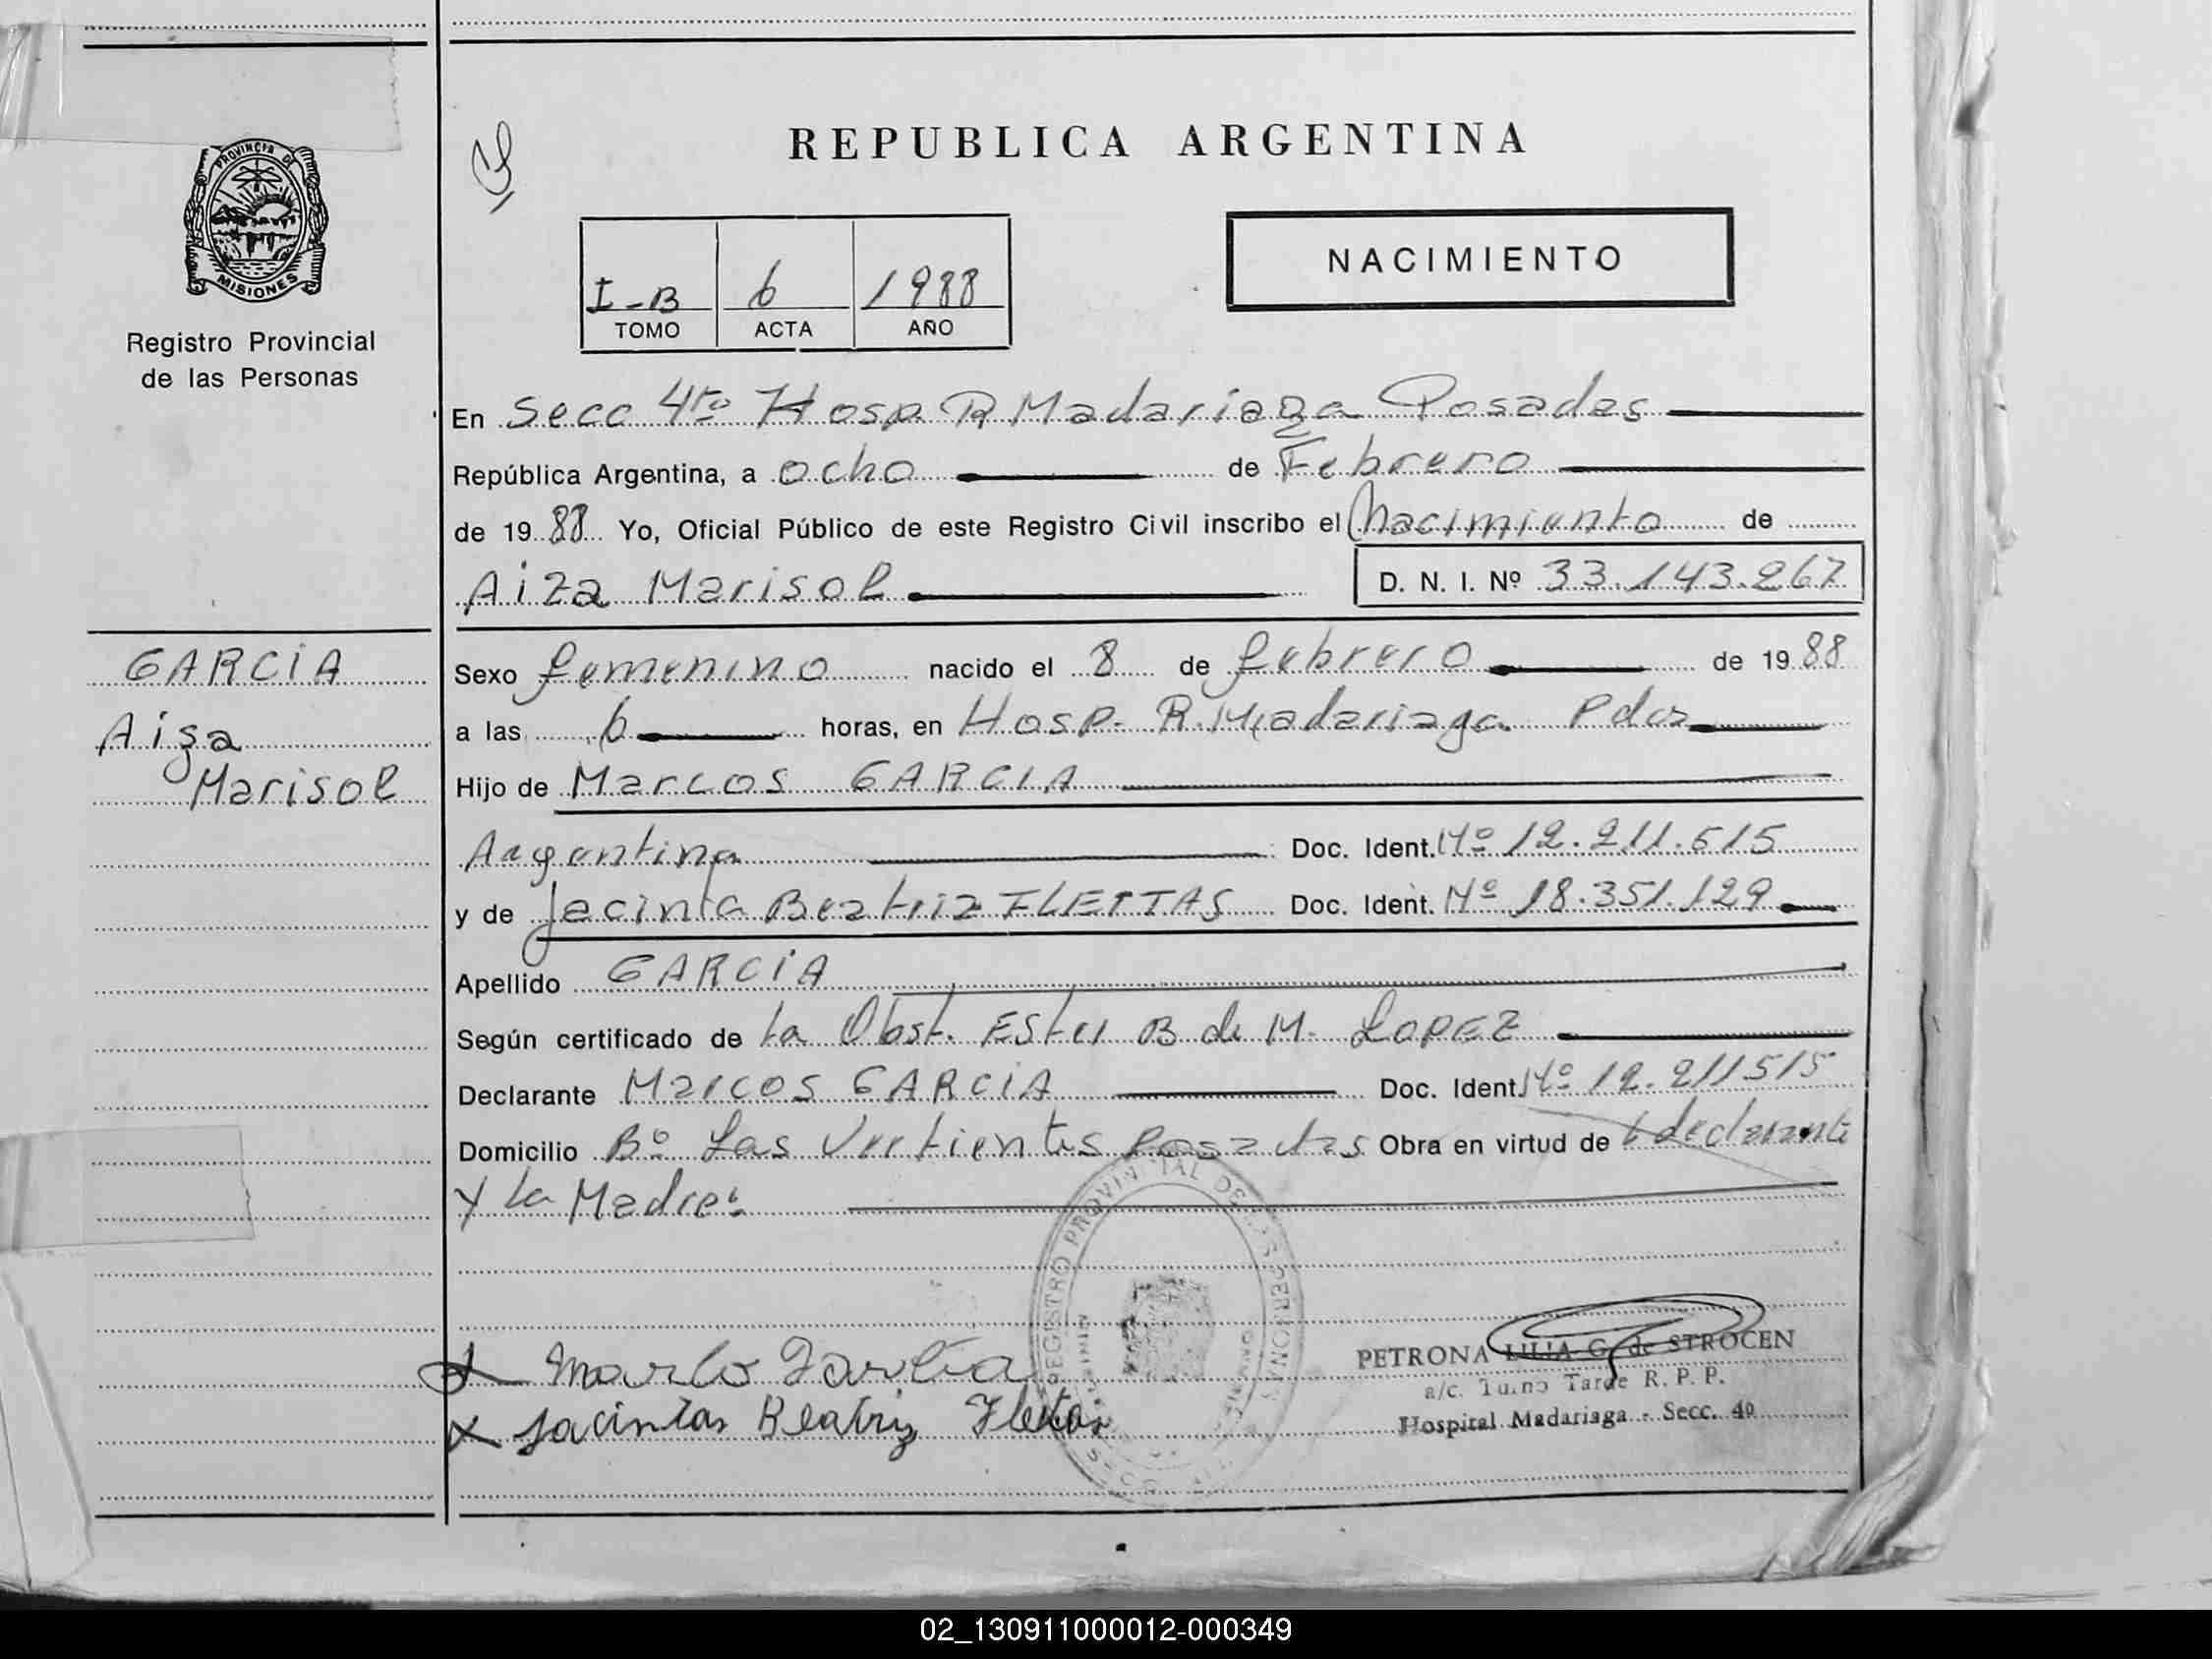 PROVINCIA DE
MISIONES
Registro Provincial
de las Personas
REPUBLICA ARGENTINA
I-B 6 1988
TOMO ACTA AÑO
NACIMIENTO
En Secc 4to Hosp R Madariaga Posadas
República Argentina, a ocho de Febrero
de 1988 Yo, Oficial Público de este Registro Civil inscribo el Nacimiento de
Aiza Marisol D. N. I. Nº 33.143.267
GARCIA
Aiza
Marisol
Sexo femenino nacido el 8 de febrero de 1988
a las 6 horas, en Hosp. R. Madariaga Pdas
Hijo de Marcos GARCIA
Argentina Doc. Ident. Nº 12.211.515
y de Jacinta Beatriz FLEITAS Doc. Ident. Nº 18.351.129
Apellido GARCIA
Según certificado de la Obst. Ester B de M. LOPEZ
Declarante Marcos GARCIA Doc. Ident. Nº 12.211515
Domicilio Bº Las Vertientes Posadas Obra en virtud de declarante
y la Madre
REGISTRO PROVINCIAL DE LAS PERSONAS
Jacinta Beatriz Fleitas
PETRONA LILIA G. de STROCEN
a/c. Turno Tarde R. P. P.
Hospital Madariaga - Secc. 4º
02_130911000012-000349